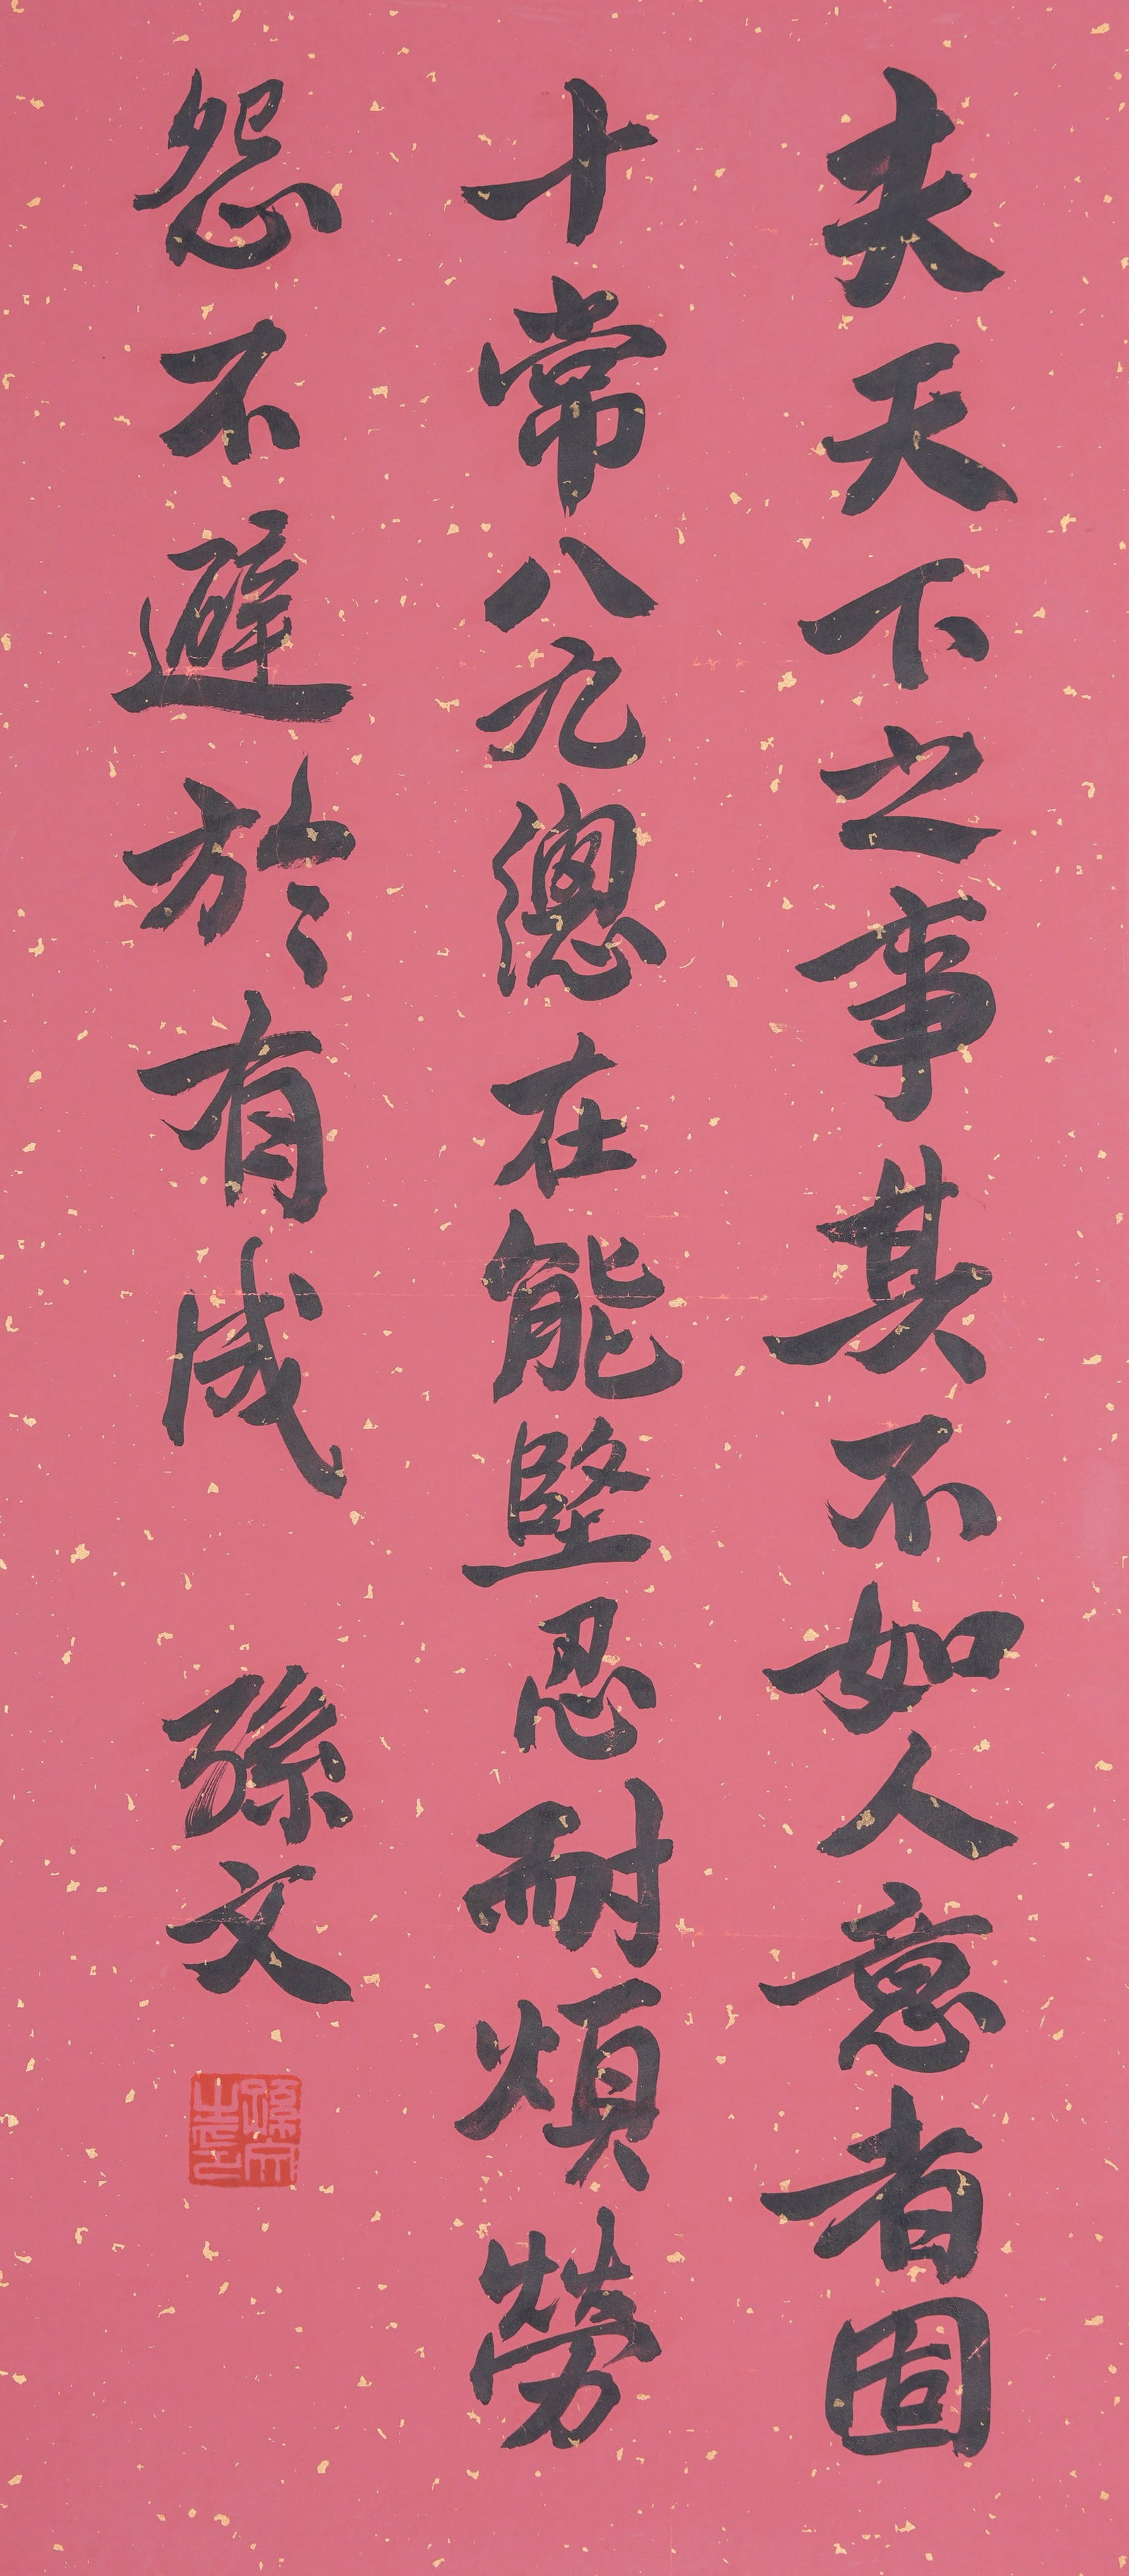 夫天下之事其不如人意者固
十常八九總在能堅忍耐煩勞
怨不避於有成
孫文
孫文之印